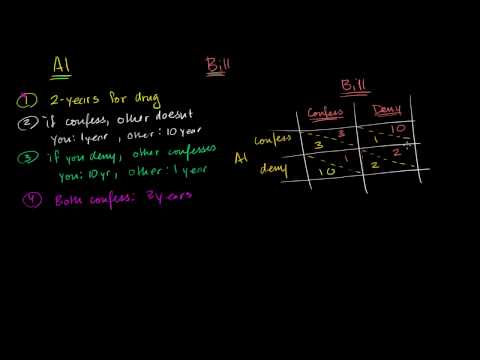 Al Bill
1 2-years for drug
2 if confess, other doesnt
you: 1 year, other: 10 year
3 if you deny, other confesses
you: 10 yr, other: 1 year
4 Both confess: 3 years
Bill
Confess Deny
Al
confess 3 3 1 10
deny 10 1 2 2